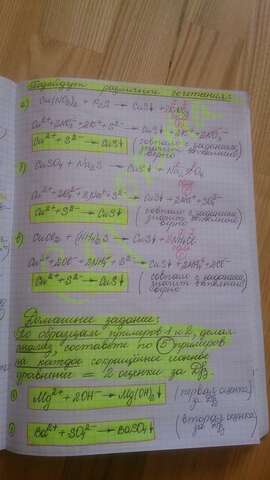 Подойдут различные сочетания:
а) Cu(NO₃)₂ + K₂S → CuS↓ + 2KNO₃
Cu²⁺ + 2NO₃⁻ + 2K⁺ + S²⁻ → CuS↓ + 2K⁺ + 2NO₃⁻
Cu²⁺ + S²⁻ → CuS↓ (совпало с заданием,
значит выполнено
верно)
б) CuSO₄ + Na₂S → CuS↓ + Na₂SO₄
Cu²⁺ + SO₄²⁻ + 2Na⁺ + S²⁻ → CuS↓ + 2Na⁺ + SO₄²⁻
Cu²⁺ + S²⁻ → CuS↓ (совпало с заданием,
значит выполнено
верно)
в) CuCl₂ + (NH₄)₂S → CuS↓ + 2NH₄Cl
Cu²⁺ + 2Cl⁻ + 2NH₄⁺ + S²⁻ → CuS↓ + 2NH₄⁺ + 2Cl⁻
Cu²⁺ + S²⁻ → CuS↓ (совпало с заданием,
значит выполнено
верно)
Домашнее задание:
По образцам примеров 1 и 2, делая
анализ, составьте по 5 примеров
на каждое сокращённое ионное
уравнение = 2 оценки за Д/З.
① Mg²⁺ + 2OH⁻ → Mg(OH)₂↓ (первая оценка
за Д/З)
② Ba²⁺ + SO₄²⁻ → BaSO₄↓ (вторая оценка
за Д/З)